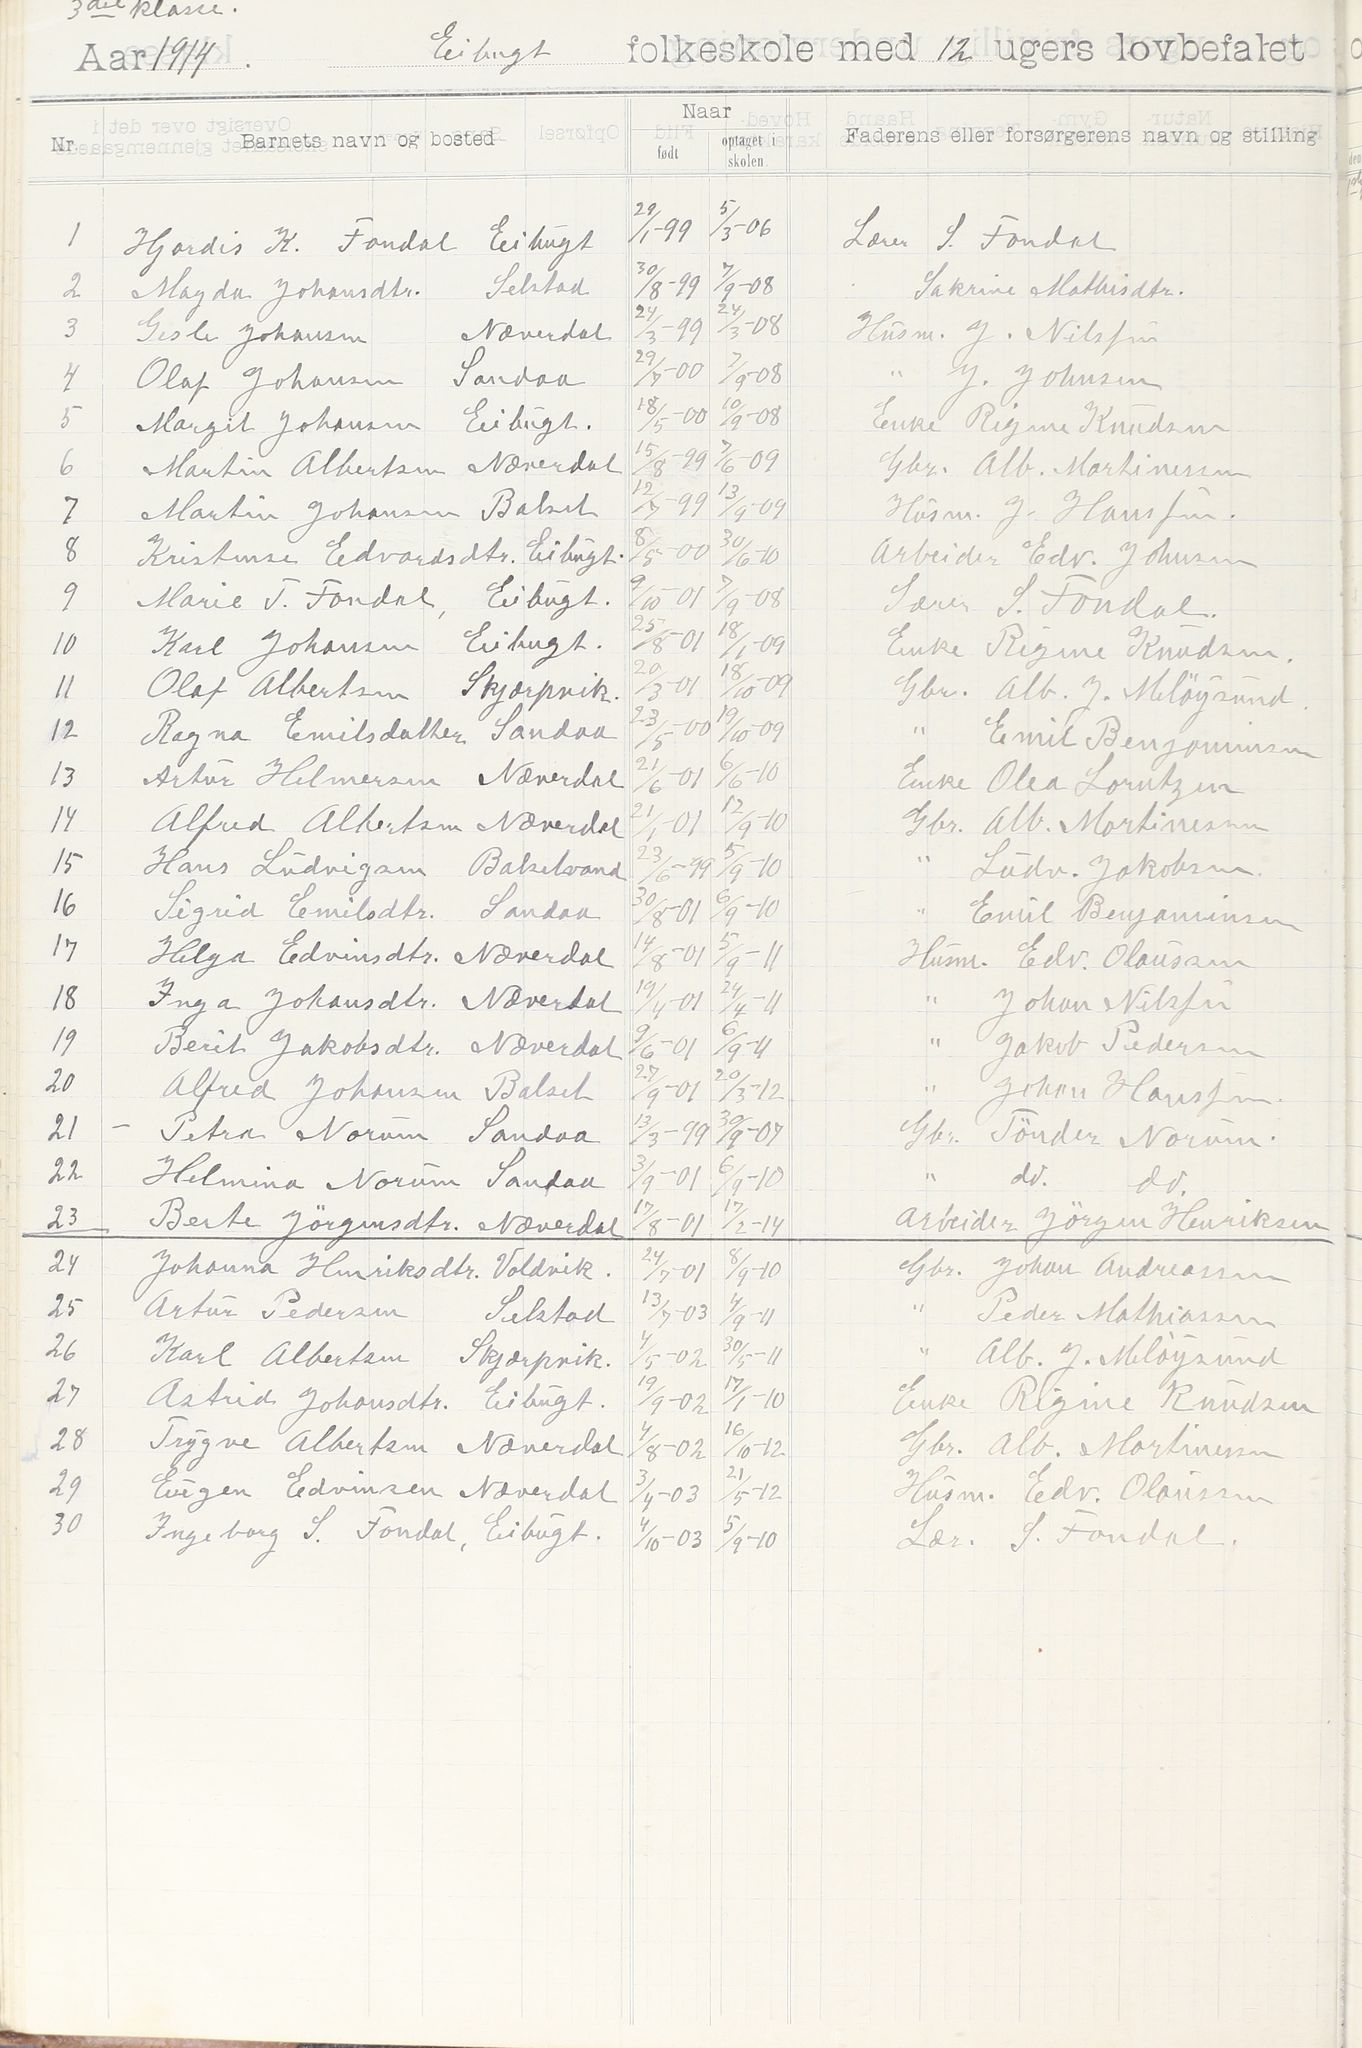 3die klasse.
Aar 1914. Eibugt folkeskole med 12 ugers lovbefalet
Nr. Barnets navn og bosted Naar Faderens eller forsørgerens navn og stilling
født optaget i skolen.
1 Hjordis K. Fondal Eibugt 29/1-99 5/3-06 Lærer S. Fondal
2 Magda Johansdtr. Selstad 30/8-99 7/9-08 Sakrine Mathisdtr.
3 Gisle Johansen Næverdal 24/3-99 24/3-08 Husm. J. Nilssen
4 Olaf Johansen Sandaa 29/7-00 7/9-08 " J. Johnsen
5 Margit Johansen Eibugt. 18/5-00 10/9-08 Enke Regine Knudsen
6 Martin Albertsen Næverdal 15/8-99 7/6-09 Gbr. Alb. Martinessen
7 Martin Johansen Balset 12/7-99 13/9-09 Husm. J. Hanssen.
8 Kristense Edvardsdtr. Eibugt. 8/5-00 30/6-10 Arbeider Edv. Johnsen
9 Marie T. Fondal, Eibugt. 9/10-01 7/9-08 Lærer S. Fondal.
10 Karl Johansen Eibugt. 25/8-01 18/1-09 Enke Regine Knudsen.
11 Olaf Albertsen Skjærpvik. 20/3-01 18/10-09 Gbr. Alb. J. Meløysund.
12 Ragna Emilsdatter Sandaa 23/5-00 19/10-09 " Emil Benjaminsen
13 Artur Helmersen Næverdal 21/6-01 6/6-10 Enke Olea Lorntzen
14 Alfred Albertsen Næverdal 21/1-01 12/9-10 Gbr. Alb. Martinessen
15 Hans Ludvigsen Balsetvand 23/6-99 5/9-10 " Ludv. Jakobsen.
16 Sigrid Emilsdtr. Sandaa 30/8-01 6/9-10 " Emil Benjaminsen
17 Helga Edvinsdtr. Næverdal 14/8-01 5/9-11 Husm. Edv. Olaussen
18 Inga Johansdtr. Næverdal 19/4-01 24/4-11 " Johan Nilssen
19 Berit Jakobsdtr. Næverdal 9/6-01 6/9-11 " Jakob Pedersen
20 Alfred Johansen Balset 27/9-01 20/3-12 " Johan Hanssen.
21 - Petra Norum Sandaa 13/3-99 30/9-07 Gbr. Tönder Norum.
22 Helmina Norum Sandaa 3/9-01 6/9-10 " do. do.
23 Berte Jörgensdtr. Næverdal 17/8-01 17/2-14 Arbeider Jörgen Henriksen
24 Johanna Henriksdtr. Voldvik. 24/7-01 8/9-10 Gbr. Johan Andreassen
25 Artur Pedersen Selstad 13/7-03 4/9-11 " Peder Mathiassen
26 Karl Albertsen Skjærpvik. 4/5-02 30/5-11 " Alb. J. Meløysund
27 Astrid Johansdtr. Eibugt. 19/9-02 17/1-10 Enke Regine Knudsen
28 Trygve Albertsen Næverdal 4/8-02 16/10-12 Gbr. Alb. Martinessen
29 Eugen Edvinsen Næverdal 3/4-03 21/5-12 Husm. Edv. Olaussen
30 Ingeborg S. Fondal, Eibugt. 4/10-03 5/9-10 Lær. S. Fondal.